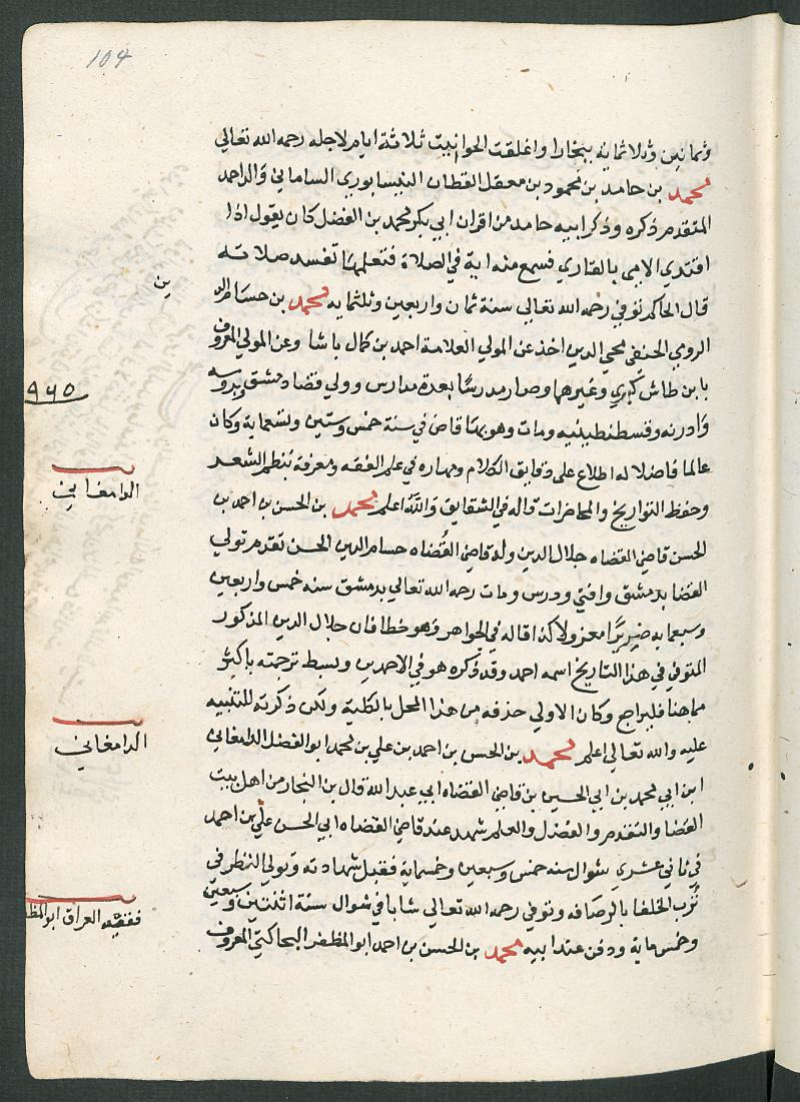 104
وثمانين وثلاثمايه ببخارا واغلقت الحوانيت ثلاثة ايام لاجله رحمه الله تعالي
محمد بن حامد بن محمود بن معقل القطان النيسابوري الساماني والد احمد
المتقدم ذكره وذكر ابيه حامد من اقران ابي بكر محمد بن الفضل كان يقول اذا
اقتدي الامي بالقاري فسمع منه اية في الصلاة فتعلمها تفسد صلاته
قال الحاكم توفي رحمه الله تعالي سنة ثمان واربعين وثلثمايه محمد بن حسام الد
ين
الرومي الحنفي محي الدين اخذ عن المولي العلامة احمد بن كمال باشا وعن المولي المعروف
بابن طاش كبري وغيرهما وصار مدرسا بعدة مدارس وولي قضا دمشق وبروسه
وادرنه وقسطنطينيه ومات وهو بها قاض في سنة خمس وستين وتسعماية وكان
٩٦٥
عالما فاضلا له اطلاع علي دقايق الكلام ومهاره في علم الفقه ومعرفة بنظم الشعر
الدامغاني
وحفظ التواريخ والمحاضرات قاله في الشقايق والله اعلم محمد بن الحسن بن احمد بن
الحسن قاضي القضاه جلال الدين ولد قاضي القضاه حسام الدين الحسن تقدم تولي
القضا بدمشق وافتي ودرس ومات رحه الله تعالي بدمشق سنه خمس واربعين
وسبعمايه ضريرا معزولا كذا قاله في الجواهر وهو خطا فان جلال الدين المذكور
المتوفي في هذا التاريخ اسمه احمد وقد ذكره هو في الاحمدين وبسط ترجمته باكثر
مما هنا فليراجع وكان الاولي حذفه من هذا المحل بالكلية ولكن ذكرته للتنبيه
عليه والله تعالي اعلم محمد بن الحسن بن احمد بن علي بن محمد ابو الفضل الدامغاني
الدامغاني
ابن ابي محمد بن ابي الحسين بن قاضي القضاه ابي عبد الله قال بن النجار من اهل بيت
القضا والتقدم والفضل والعلم شهد عند قاضي القضاه ابي الحسن علي بن احمد
في ثاني عشري شوال سنه خمس وسبعين وخمسماية فقبل شهادته وتولي النظر في
ترب الخلفا بالرصافه وتوفي رحمه الله تعالي شابا في شوال سنة اثنتين وسبعين
فقيه العراق ابو المظ
وخمس ماية ودفن عند ابيه محمد بن الحسن بن احمد ابو المظفر البحاكثي المعروف